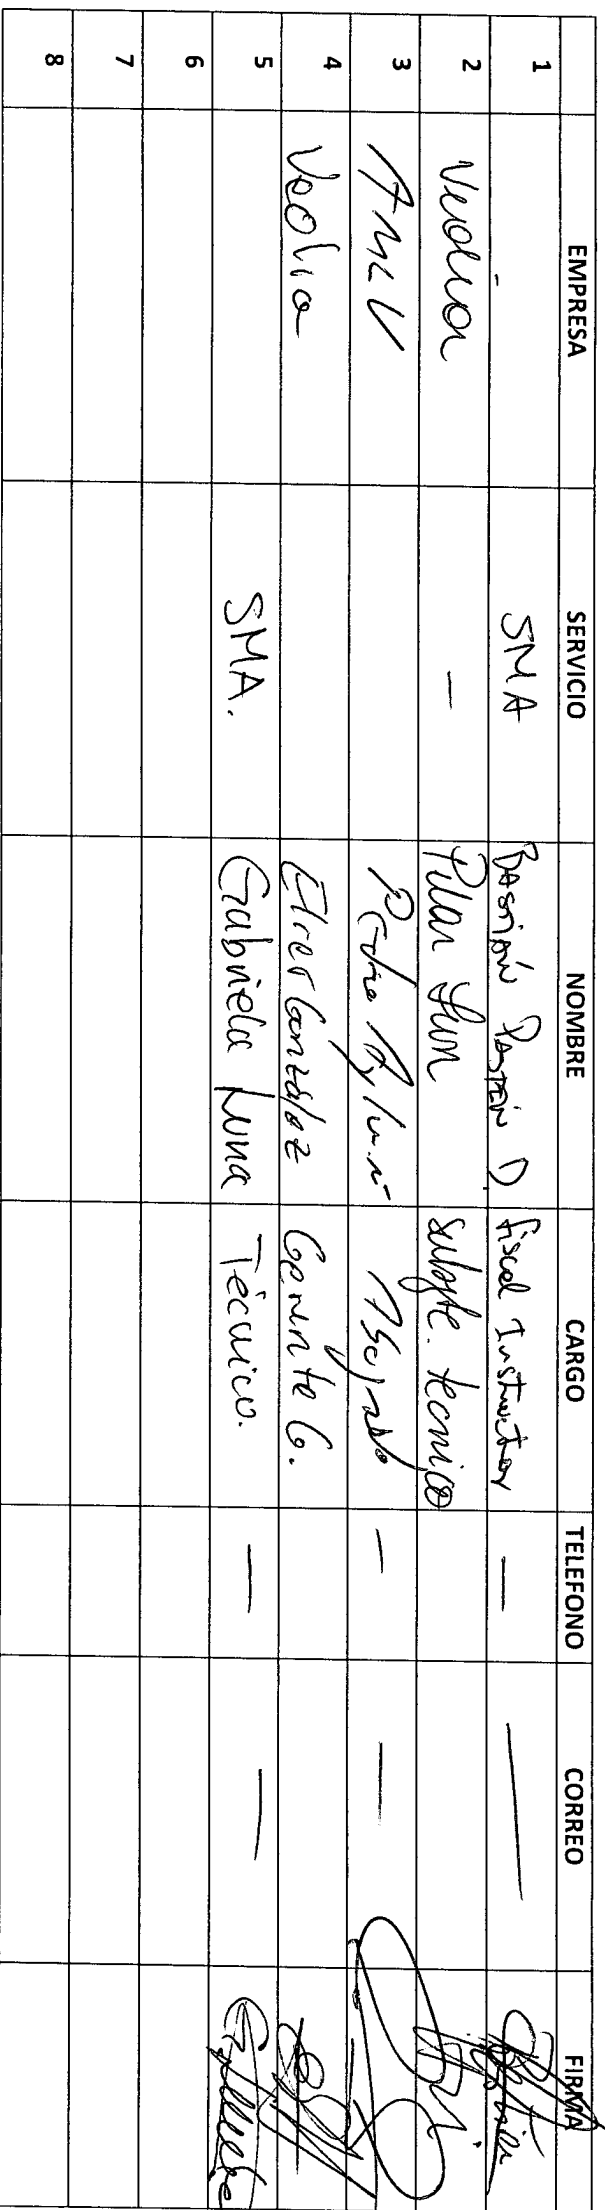 EMPRESA SERVICIO NOMBRE CARGO TELEFONO CORREO FIRMA
1 SMA Bastián Pastén D fiscal Instructor — —
2 Veolia — Pilar subgte. tecnico
3 Pedro — —
4 Veolia González Gerente G.
5 SMA. Gabriela Luna Técnico. — —
6
7
8